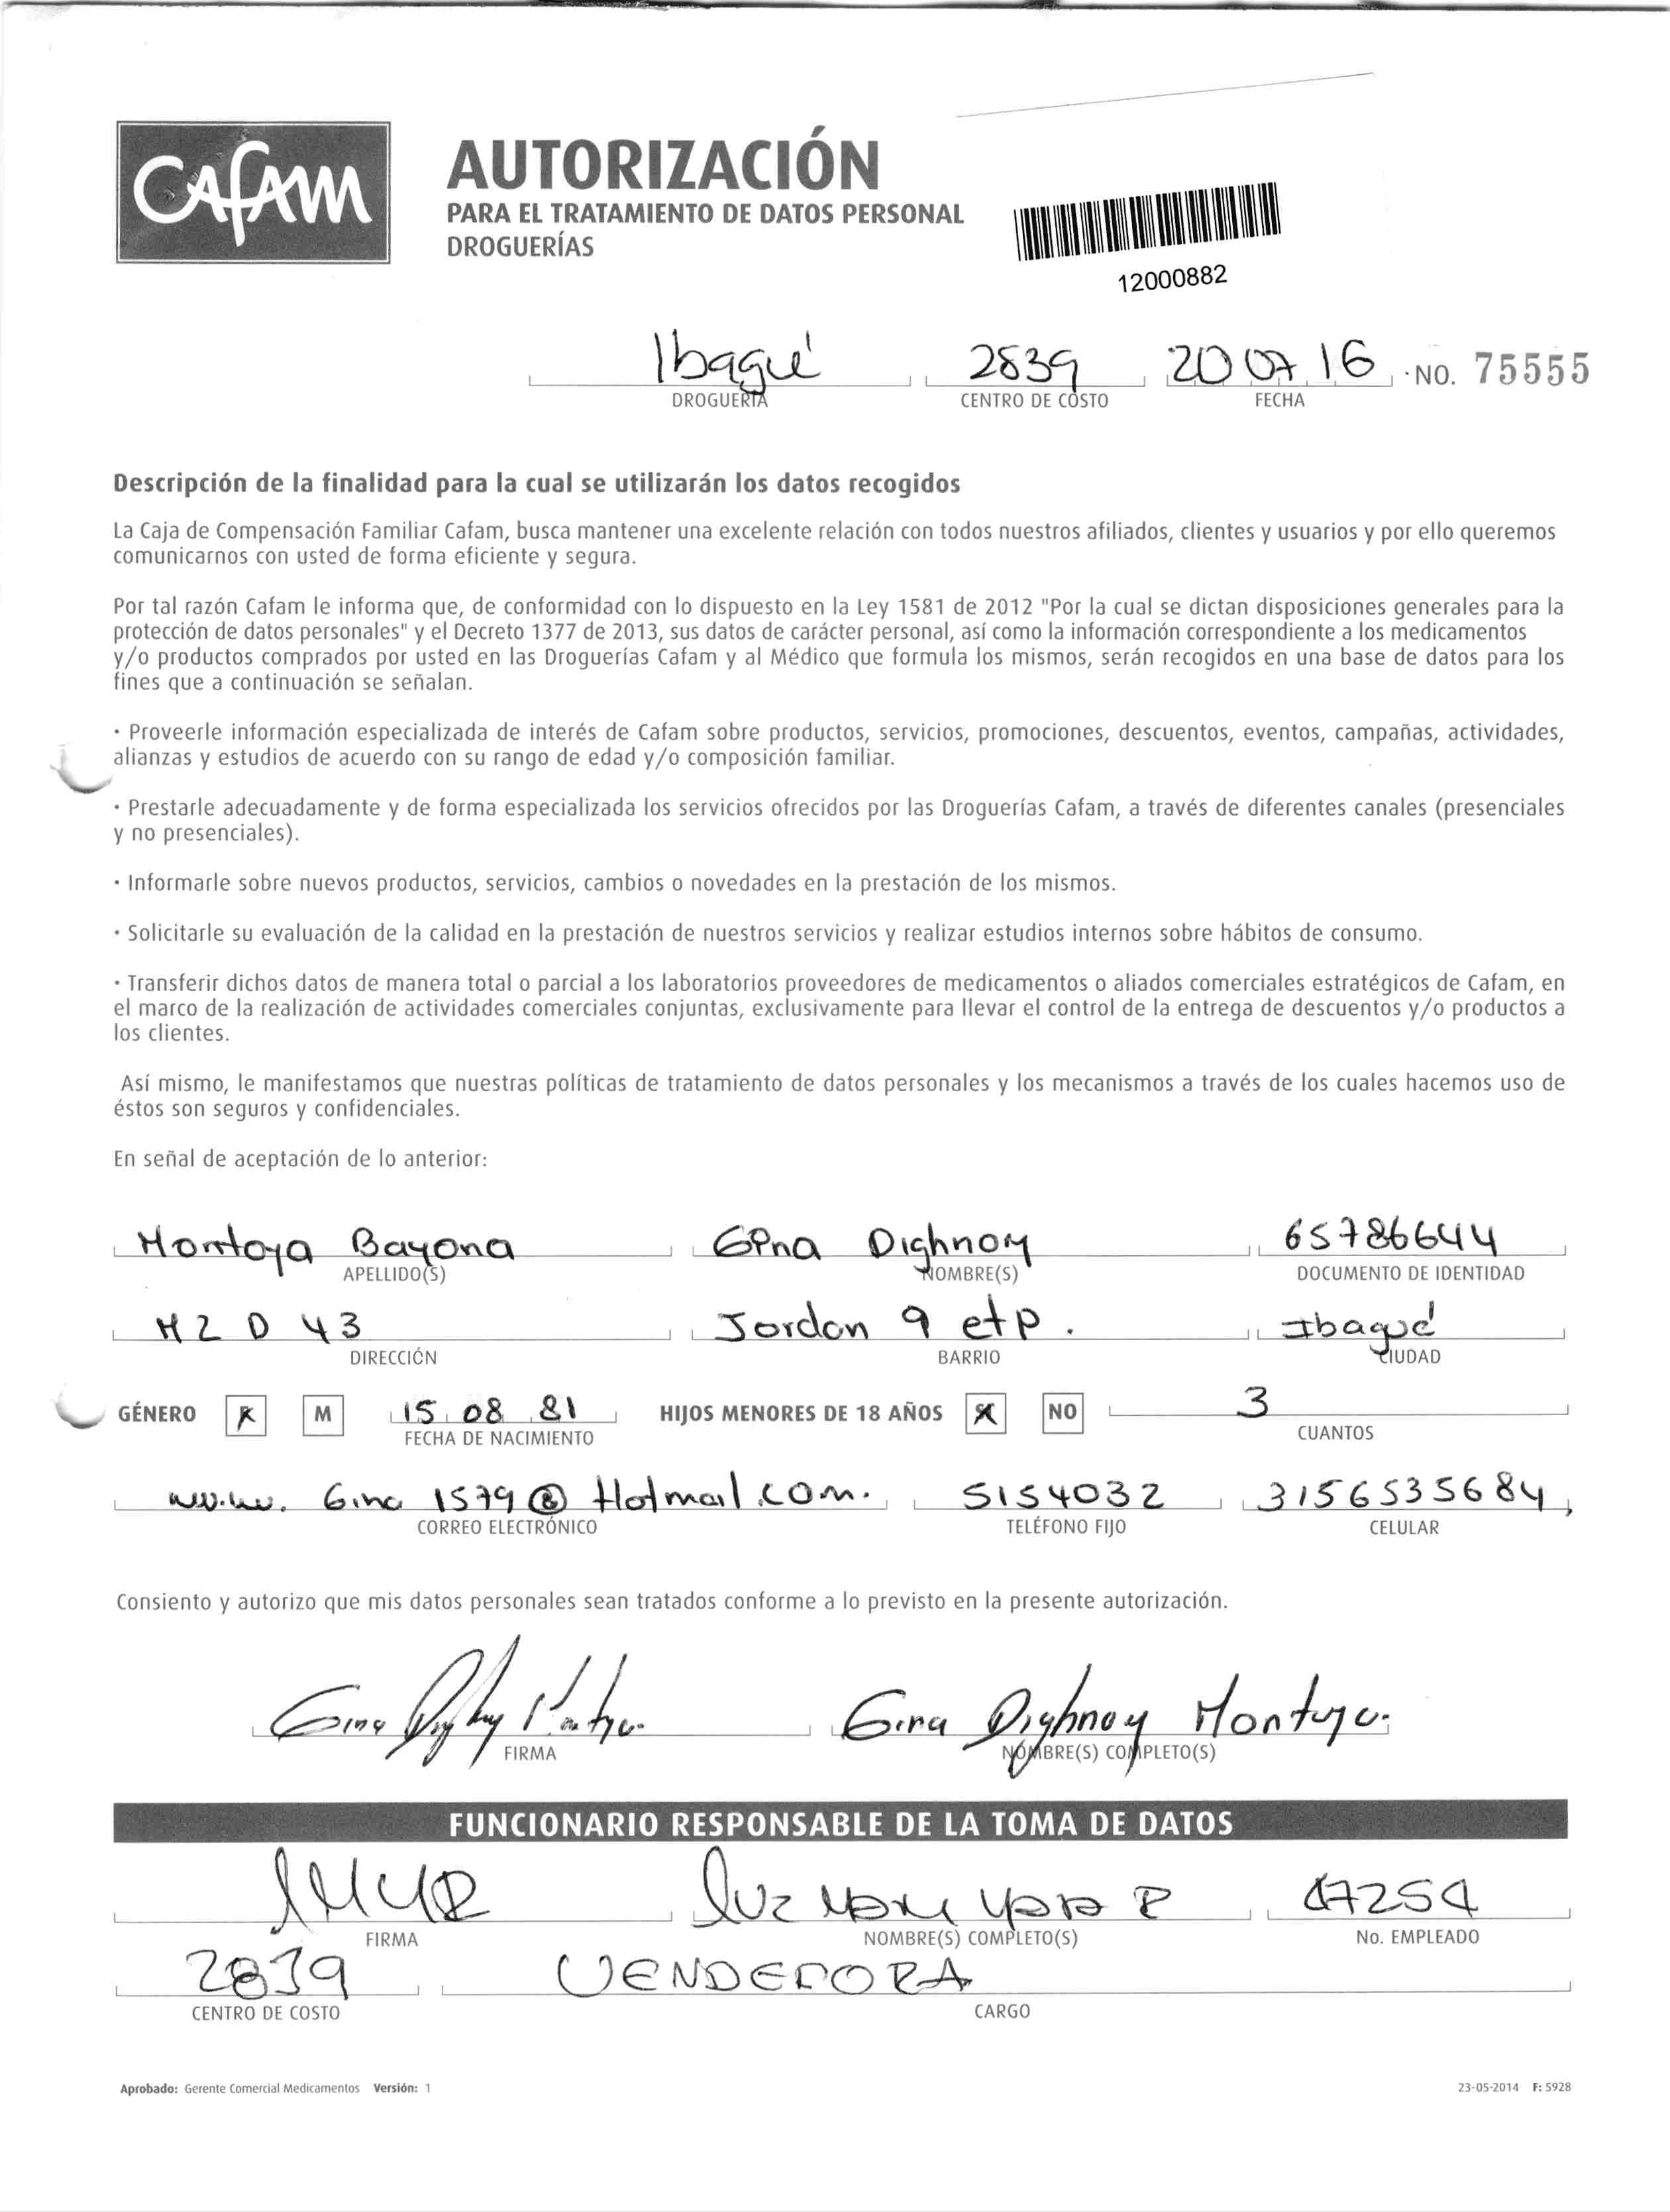 CAFAM
AUTORIZACIÓN
PARA EL TRATAMIENTO DE DATOS PERSONAL
DROGUERÍAS
12000882
Ibagué 2839 20 07 16 NO. 75555
DROGUERÍA CENTRO DE COSTO FECHA
Descripción de la finalidad para la cual se utilizarán los datos recogidos
La Caja de Compensación Familiar Cafam, busca mantener una excelente relación con todos nuestros afiliados, clientes y usuarios y por ello queremos
comunicarnos con usted de forma eficiente y segura.
Por tal razón Cafam le informa que, de conformidad con lo dispuesto en la Ley 1581 de 2012 "Por la cual se dictan disposiciones generales para la
protección de datos personales" y el Decreto 1377 de 2013, sus datos de carácter personal, así como la información correspondiente a los medicamentos
y/o productos comprados por usted en las Droguerías Cafam y al Médico que formula los mismos, serán recogidos en una base de datos para los
fines que a continuación se señalan.
· Proveerle información especializada de interés de Cafam sobre productos, servicios, promociones, descuentos, eventos, campañas, actividades,
alianzas y estudios de acuerdo con su rango de edad y/o composición familiar.
· Prestarle adecuadamente y de forma especializada los servicios ofrecidos por las Droguerías Cafam, a través de diferentes canales (presenciales
y no presenciales).
· Informarle sobre nuevos productos, servicios, cambios o novedades en la prestación de los mismos.
· Solicitarle su evaluación de la calidad en la prestación de nuestros servicios y realizar estudios internos sobre hábitos de consumo.
· Transferir dichos datos de manera total o parcial a los laboratorios proveedores de medicamentos o aliados comerciales estratégicos de Cafam, en
el marco de la realización de actividades comerciales conjuntas, exclusivamente para llevar el control de la entrega de descuentos y/o productos a
los clientes.
Así mismo, le manifestamos que nuestras políticas de tratamiento de datos personales y los mecanismos a través de los cuales hacemos uso de
éstos son seguros y confidenciales.
En señal de aceptación de lo anterior:
Montoya Bayona Gina Dighnoy 65786644
APELLIDO(S) NOMBRE(S) DOCUMENTO DE IDENTIDAD
MZ D 43 Jordan 9 etp. Ibagué
DIRECCIÓN BARRIO CIUDAD
GÉNERO F M 15 08 81 HIJOS MENORES DE 18 AÑOS SI NO 3
FECHA DE NACIMIENTO CUANTOS
www. Gina 1579@Hotmail.com. 5154032 3156535684
CORREO ELECTRÓNICO TELÉFONO FIJO CELULAR
Consiento y autorizo que mis datos personales sean tratados conforme a lo previsto en la presente autorización.
Gina Dighnoy Montoya.
FIRMA NOMBRE(S) COMPLETO(S)
FUNCIONARIO RESPONSABLE DE LA TOMA DE DATOS
luz 17254
FIRMA NOMBRE(S) COMPLETO(S) No. EMPLEADO
2839 VENDEDORA
CENTRO DE COSTO CARGO
Aprobado: Gerente Comercial Medicamentos Versión: 1 23-05-2014 F: 5928